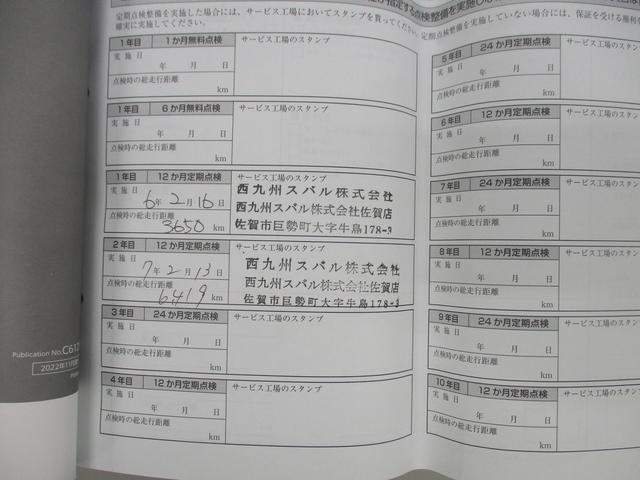 定期点検整備を実施した場合には、サービス工場においてスタンプを貰ってください。定期点検整備を実施していない場合には、保証を受ける権利
確実に実施してください。
1年目 1か月無料点検 サービス工場のスタンプ
実施日
年 月 日
点検時の総走行距離
km
1年目 6か月無料点検 サービス工場のスタンプ
実施日
年 月 日
点検時の総走行距離
km
1年目 12か月定期点検 サービス工場のスタンプ
実施日
6年 2月 16日
点検時の総走行距離
3650 km
西九州スバル株式会社
西九州スバル株式会社佐賀店
佐賀市巨勢町大字牛島178-3
2年目 12か月定期点検 サービス工場のスタンプ
実施日
7年 2月 13日
点検時の総走行距離
6419 km
西九州スバル株式会社
西九州スバル株式会社佐賀店
佐賀市巨勢町大字牛島178-3
3年目 24か月定期点検 サービス工場のスタンプ
実施日
年 月 日
点検時の総走行距離
km
4年目 12か月定期点検 サービス工場のスタンプ
実施日
年 月 日
点検時の総走行距離
km
5年目 24か月定期点検
実施日
年 月 日
点検時の総走行距離
km
6年目 12か月定期点検
実施日
年 月 日
点検時の総走行距離
km
7年目 24か月定期点検
実施日
年 月 日
点検時の総走行距離
km
8年目 12か月定期点検
実施日
年 月 日
点検時の総走行距離
km
9年目 24か月定期点検
実施日
年 月 日
点検時の総走行距離
km
10年目 12か月定期点検
実施日
年 月 日
点検時の総走行距離
km
Publication No.C61
2022年11月